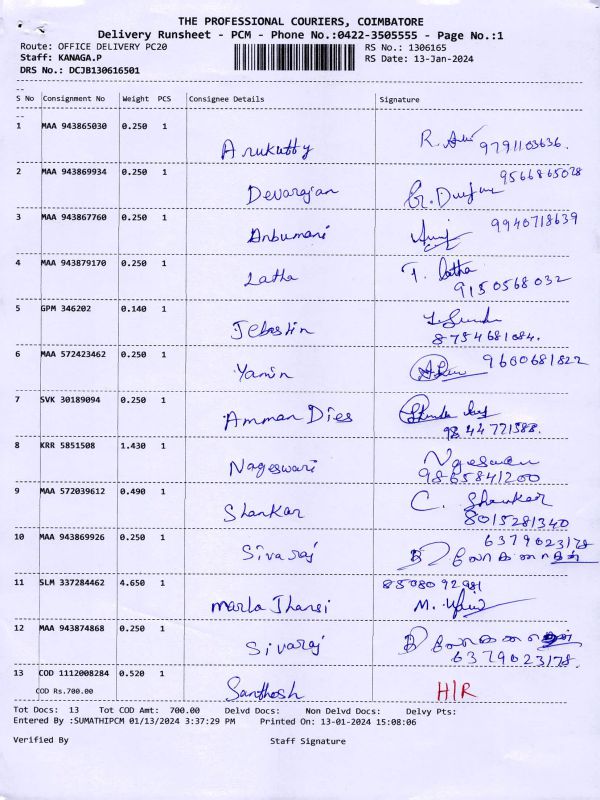 THE PROFESSIONAL COURIERS, COIMBATORE
Delivery Runsheet - PCM - Phone No.:0422-3505555 - Page No.:1
Route: OFFICE DELIVERY PC20 RS No.: 1306165
Staff: KANAGA.P RS Date: 13-Jan-2024
DRS No.: DCJB130616501
S No Consignment No Weight PCS Consignee Details Signature
1 MAA 943865030 0.250 1 Arukutty R. 9791103636.
2 MAA 943869934 0.250 1 Devarajan 9566865028
3 MAA 943867760 0.250 1 Anbumani 9940718639
4 MAA 943879170 0.250 1 Latha T. Latha
9150568032
5 GPM 346202 0.140 1 Jebastin
8754681084.
6 MAA 572423462 0.250 1 Yamin 9600681822
7 SVK 30189094 0.250 1 Amman Dies
9844721588.
8 KRR 5851508 1.430 1 Nageswari
9865841200
9 MAA 572039612 0.490 1 Shankar C. Shankar
8015281340
10 MAA 943869926 0.250 1 Sivaraj 6379023178
11 SLM 337284462 4.650 1 Marla Jhansi 8508092981
M.
12 MAA 943874868 0.250 1 Sivaraj
6379023178.
13 COD 1112008284 0.520 1 Santhosh H/R
COD Rs.700.00
Tot Docs: 13 Tot COD Amt: 700.00 Delvd Docs: Non Delvd Docs: Delvy Pts:
Entered By :SUMATHIPCM 01/13/2024 3:37:29 PM Printed On: 13-01-2024 15:08:06
Verified By Staff Signature